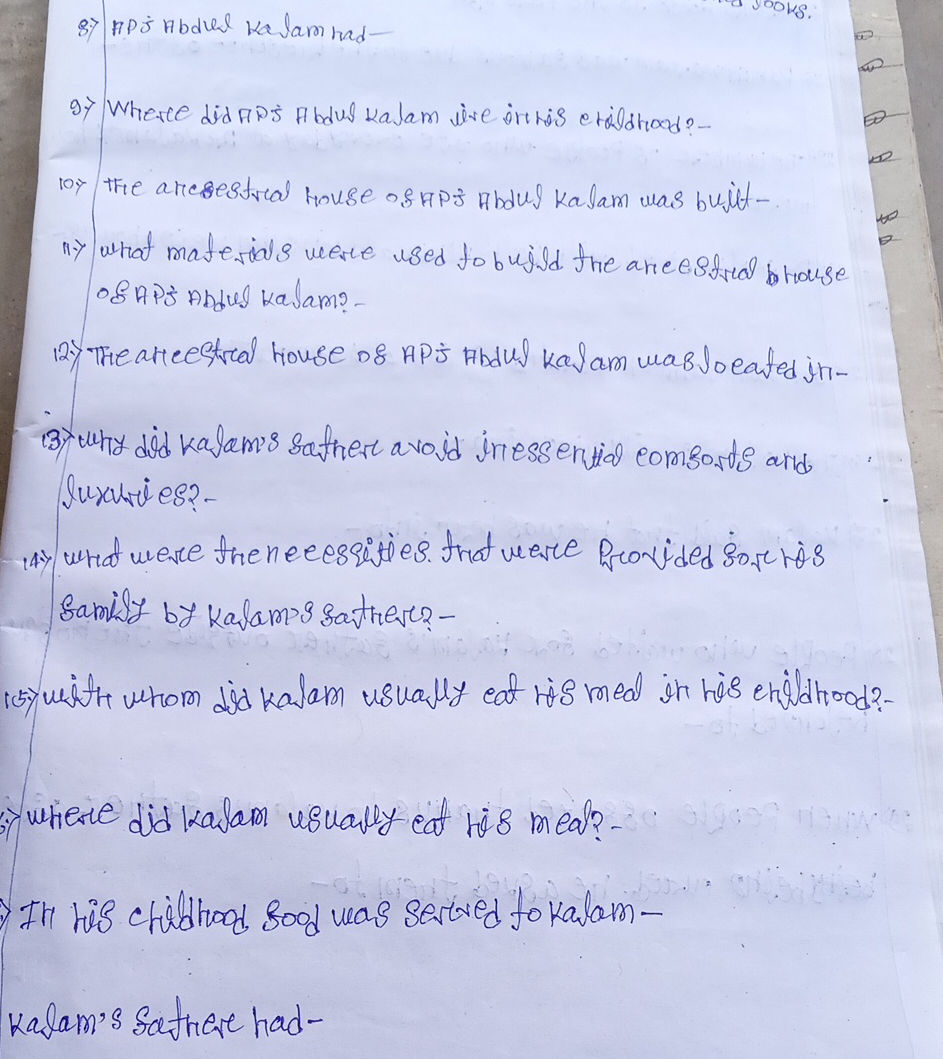 8) APJ Abdul Kalam had-
9) Where did APJ Abdul Kalam live in his childhood?-
10) The ancestral house of APJ Abdul Kalam was built-
11) what materials were used to build the ancestral house
of APJ Abdul Kalam?-
12) The ancestral house of APJ Abdul Kalam was located in-
13) why did Kalam's father avoid inessential comforts and
luxuries?-
14) what were the necessities. that were Provided for his
family by Kalam's father?-
15) with whom did Kalam usually eat his meal in his childhood?-
where did Kalam usually eat his meal?-
In his childhood food was served to Kalam-
Kalam's father had-